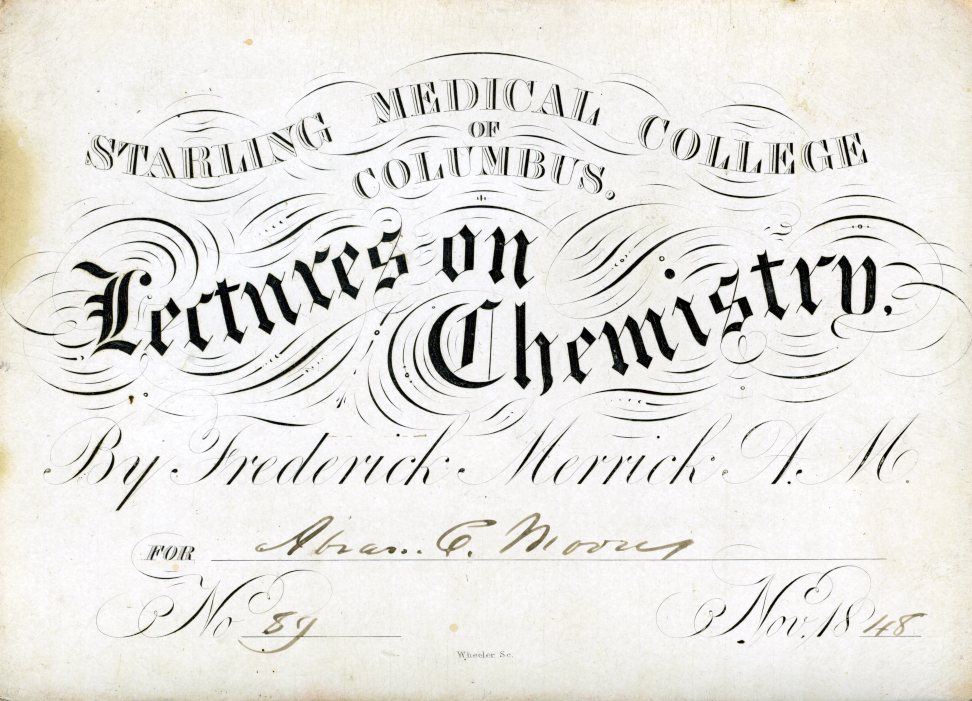 STARLING MEDICAL COLLEGE
OF
COLUMBUS.
Lectures on
Chemistry.
By Frederick Merrick A. M.
FOR Abram C.
No 89 Nov. 1848
Wheeler Sc.